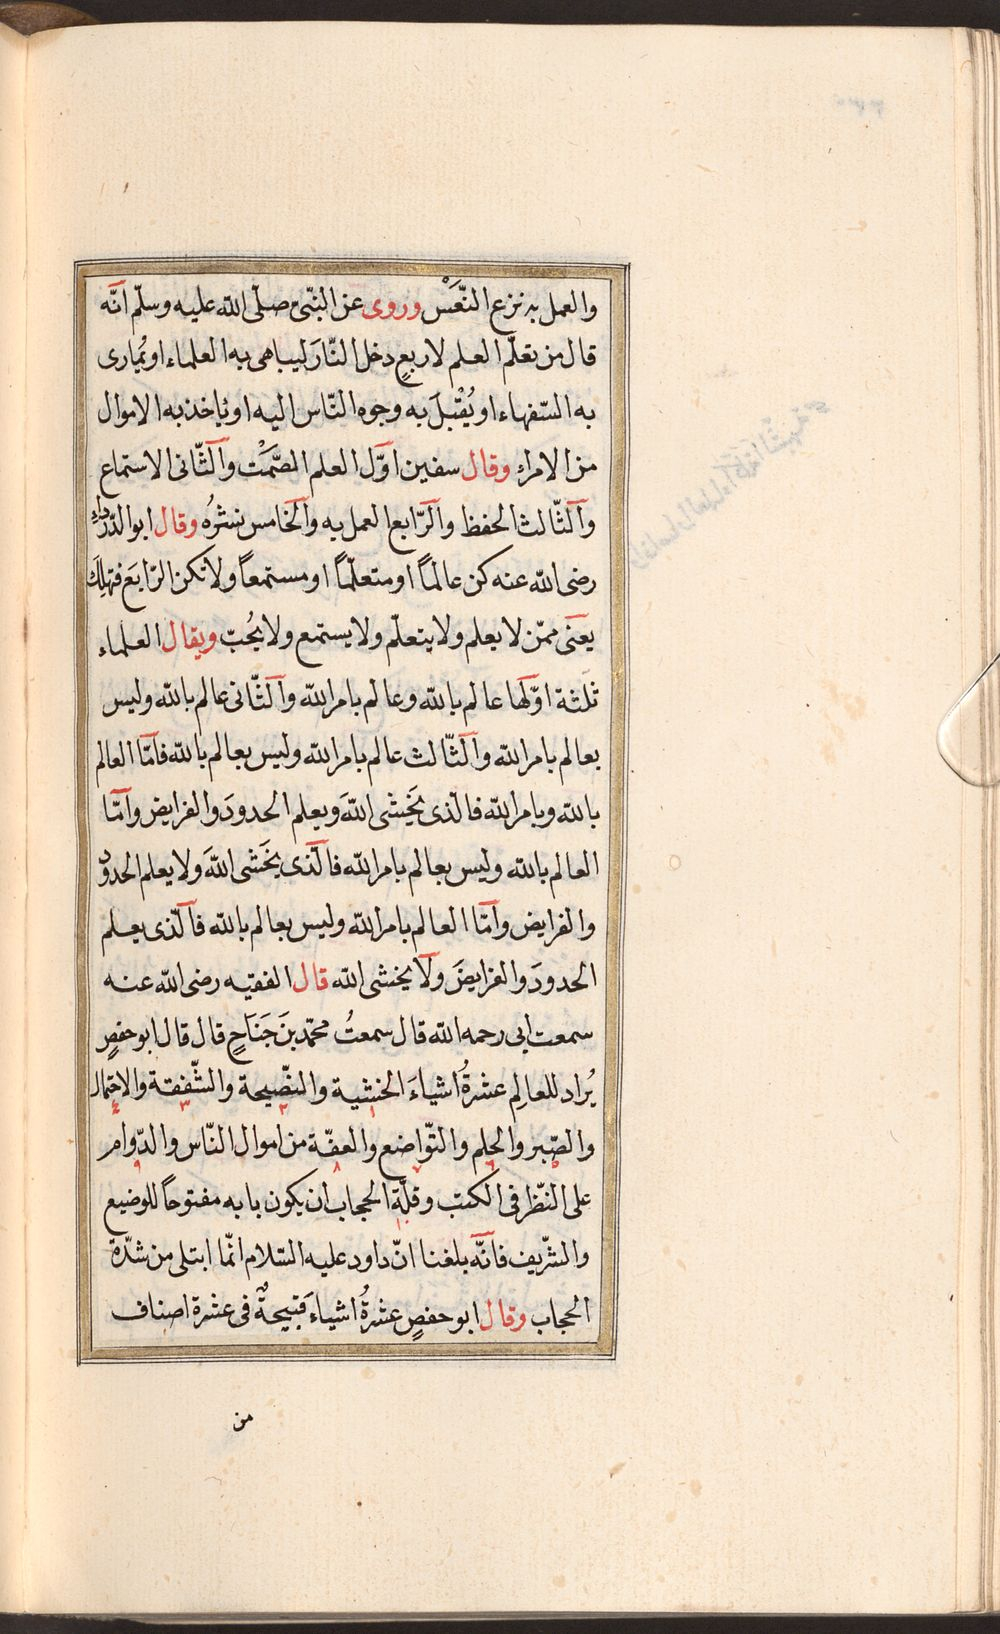 والعمل به نزع النّعَسْ وروى عن النبّى صلّى الله عليه وسلّم انّه
قال من تعلّم العلم لاربعٍ دخل النّارَ ليباهى به العلماء او يُمارى
به السّفهاء او يُقْبلَ به وجوه النّاس اليه او ياخذ به الاموال
من الامراء وقال سفين اوّل العلم الصّمَْت والثّانى الاستماع
والثّالث الحفظ والرّابع العمل به والخامس نشرُه وقال ابو الدّرداء
رضى الله عنه كن عالماً او متعلّماً او مستمعاً ولا تكن الرّابعَ فتهلِكَ
يعنى ممّن لا يعلم ولا يتعلّم ولا يستمع ولا يحُبّ ويقال العلماء
ثلثة اوّلها عالم بالله وعالم بامر الله والثّانى عالم بالله وليس
بعالم بامر الله والثّالث عالم بامر الله وليس بعالم بالله فامّا العالم
بالله وبامر الله فالّذى يَخْشى اللهَ ويعلم الحدودَ والفرايض وامّا
العالم بالله وليس بعالم بامر الله فالّذى يخَشى اللهَ ولا يعلم الحدود
والفرايض وامّا العالم بامر الله وليس بعالم بالله فالّذى يعلم
الحدودَ والفرايضَ ولا يخشى الله قال الفقيه رضى الله عنه
سمعت ابى رحمه الله قال سمعتُ محمّد بنَ جَنَاحٍ قال قال ابو حفصٍ
يُراد للعالِم عشرةُ اشياءَ الخشية والنّصيحة والشّفقة والاحتمال
والصّبر والحِلم والتّواضع والعفّة من اموال النّاس والدّوام
على النّظر فى الكتب وقلّة الحجاب ان يكون بابه مفتوحاً للوضيع
والشّريف فانّه بلغنا انّ داود عليه السّلام انّما ابتلى من شدّة
الحجاب وقال ابو حفصٍ عشرةُ اشياءَ قبيحةٌ فى عشرة اصناف
من